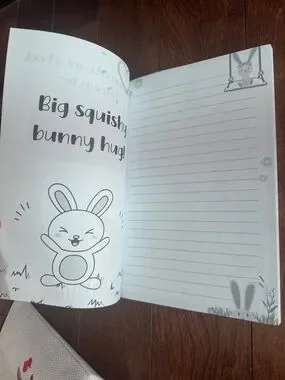 Big squishy
bunny hug!